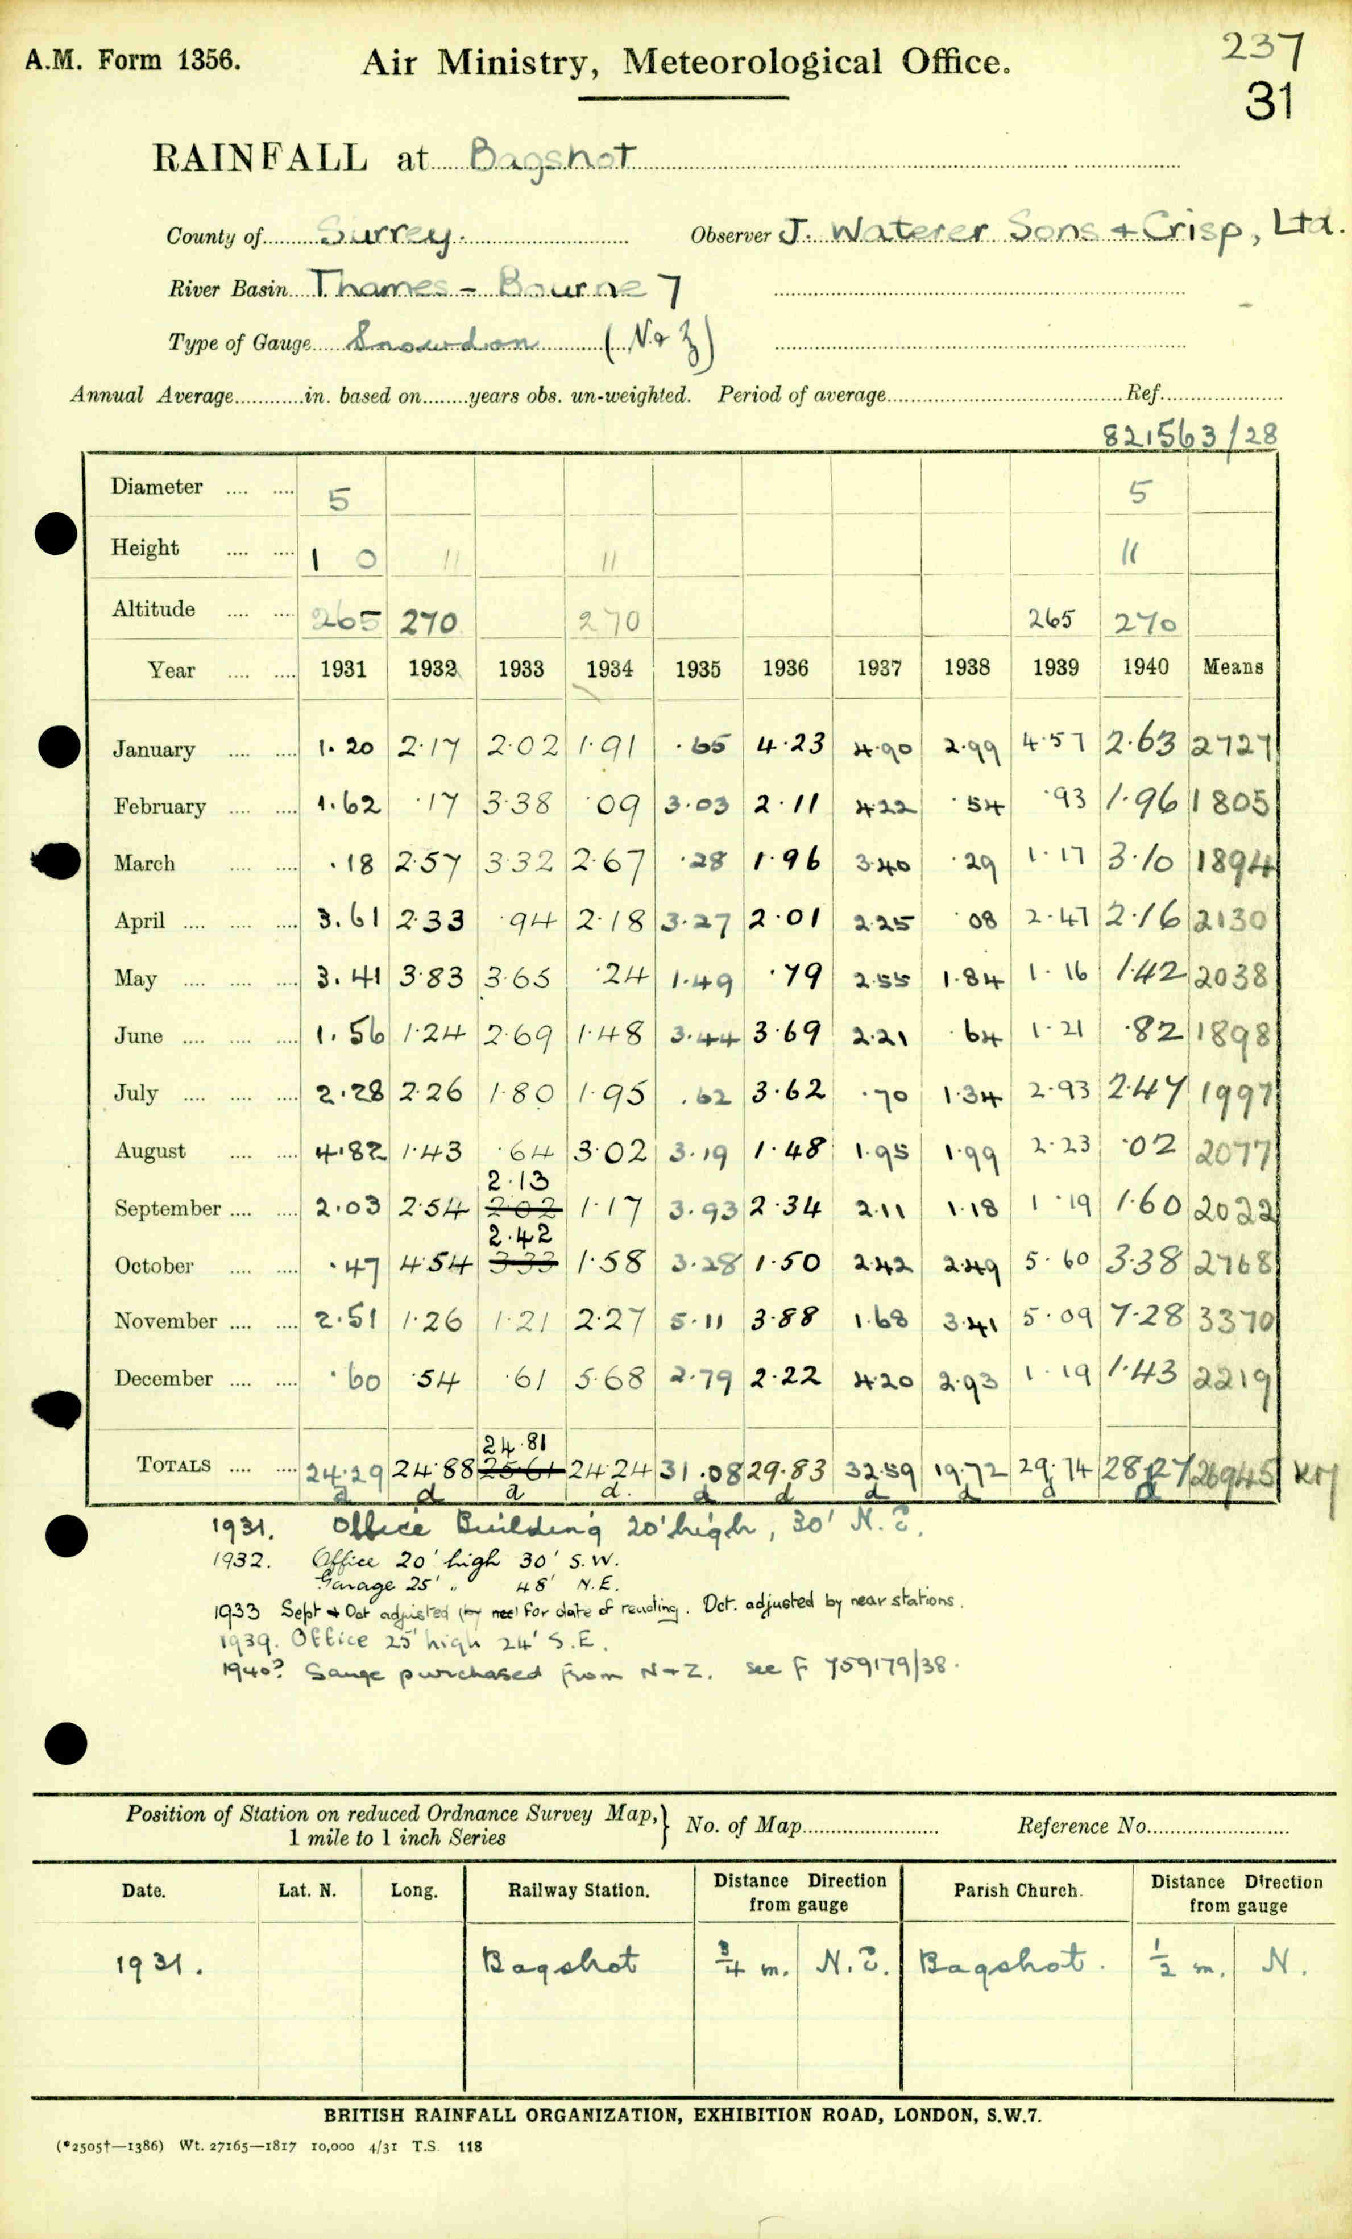 A.M. Form 1356.
Air Ministry, Meteorological Office.
237
31
RAINFALL at Bagshot
County of Surrey. Observer J. Waterer Sons + Crisp, Ltd.
River Basin Thames - Bourne 7
Type of Gauge Snowdon (N & Z)
Annual Average in. based on years obs. un-weighted. Period of average Ref.
821563/28
Diameter .... .... 5 5
Height .... .... 1 0 11 11 11
Altitude .... .... 265 270 270 265 270
Year .... .... 1931 1932 1933 1934 1935 1936 1937 1938 1939 1940 Means
January .... .... 1.20 2.17 2.02 1.91 .65 4.23 4.90 2.99 4.57 2.63 2727
February .... .... 1.62 .17 3.38 .09 3.03 2.11 4.22 .54 .93 1.96 1805
March .... .... .18 2.57 3.32 2.67 .28 1.96 3.40 .29 1.17 3.10 1894
April .... .... .... 3.61 2.33 .94 2.18 3.27 2.01 2.25 .08 2.47 2.16 2130
May .... .... .... 3.41 3.83 3.65 .24 1.49 .79 2.55 1.84 1.16 1.42 2038
June .... .... .... 1.56 1.24 2.69 1.48 3.44 3.69 2.21 .64 1.21 .82 1898
July .... .... .... 2.28 2.26 1.80 1.95 .62 3.62 .70 1.34 2.93 2.47 1997
August .... .... 4.82 1.43 .64 3.02 3.19 1.48 1.95 1.99 2.23 .02 2077
2.13
September .... .... 2.03 2.54 2.02 1.17 3.93 2.34 2.11 1.18 1.19 1.60 2022
2.42
October .... .... .47 4.54 3.33 1.58 3.28 1.50 2.42 2.49 5.60 3.38 2768
November .... .... 2.51 1.26 1.21 2.27 5.11 3.88 1.68 3.41 5.09 7.28 3370
December .... .... .60 .54 .61 5.68 2.79 2.22 4.20 2.93 1.19 1.43 2219
24.81
TOTALS .... .... 24.29 24.88 25.61 24.24 31.08 29.83 32.59 19.72 29.74 28.27 26945
d d d d. d d d d d d
1931. Office Building 20' high, 30' N.E.
1932. Office 20' high 30' S.W.
Garage 25' " 48' N.E.
1933 Sept & Oct adjusted for date of reading. Oct. adjusted by near stations.
1939. Office 25' high 24' S.E.
1940? Gauge purchased from N+Z. see F 759179/38.
Position of Station on reduced Ordnance Survey Map, } No. of Map Reference No.
1 mile to 1 inch Series
Date. Lat. N. Long. Railway Station. Distance Direction from gauge Parish Church. Distance Direction from gauge
1931. Bagshot 3/4 m. N.E. Bagshot. 1/2 m. N.
BRITISH RAINFALL ORGANIZATION, EXHIBITION ROAD, LONDON, S.W.7.
(*2505†—1386) Wt. 27165—1817 10,000 4/31 T.S. 118